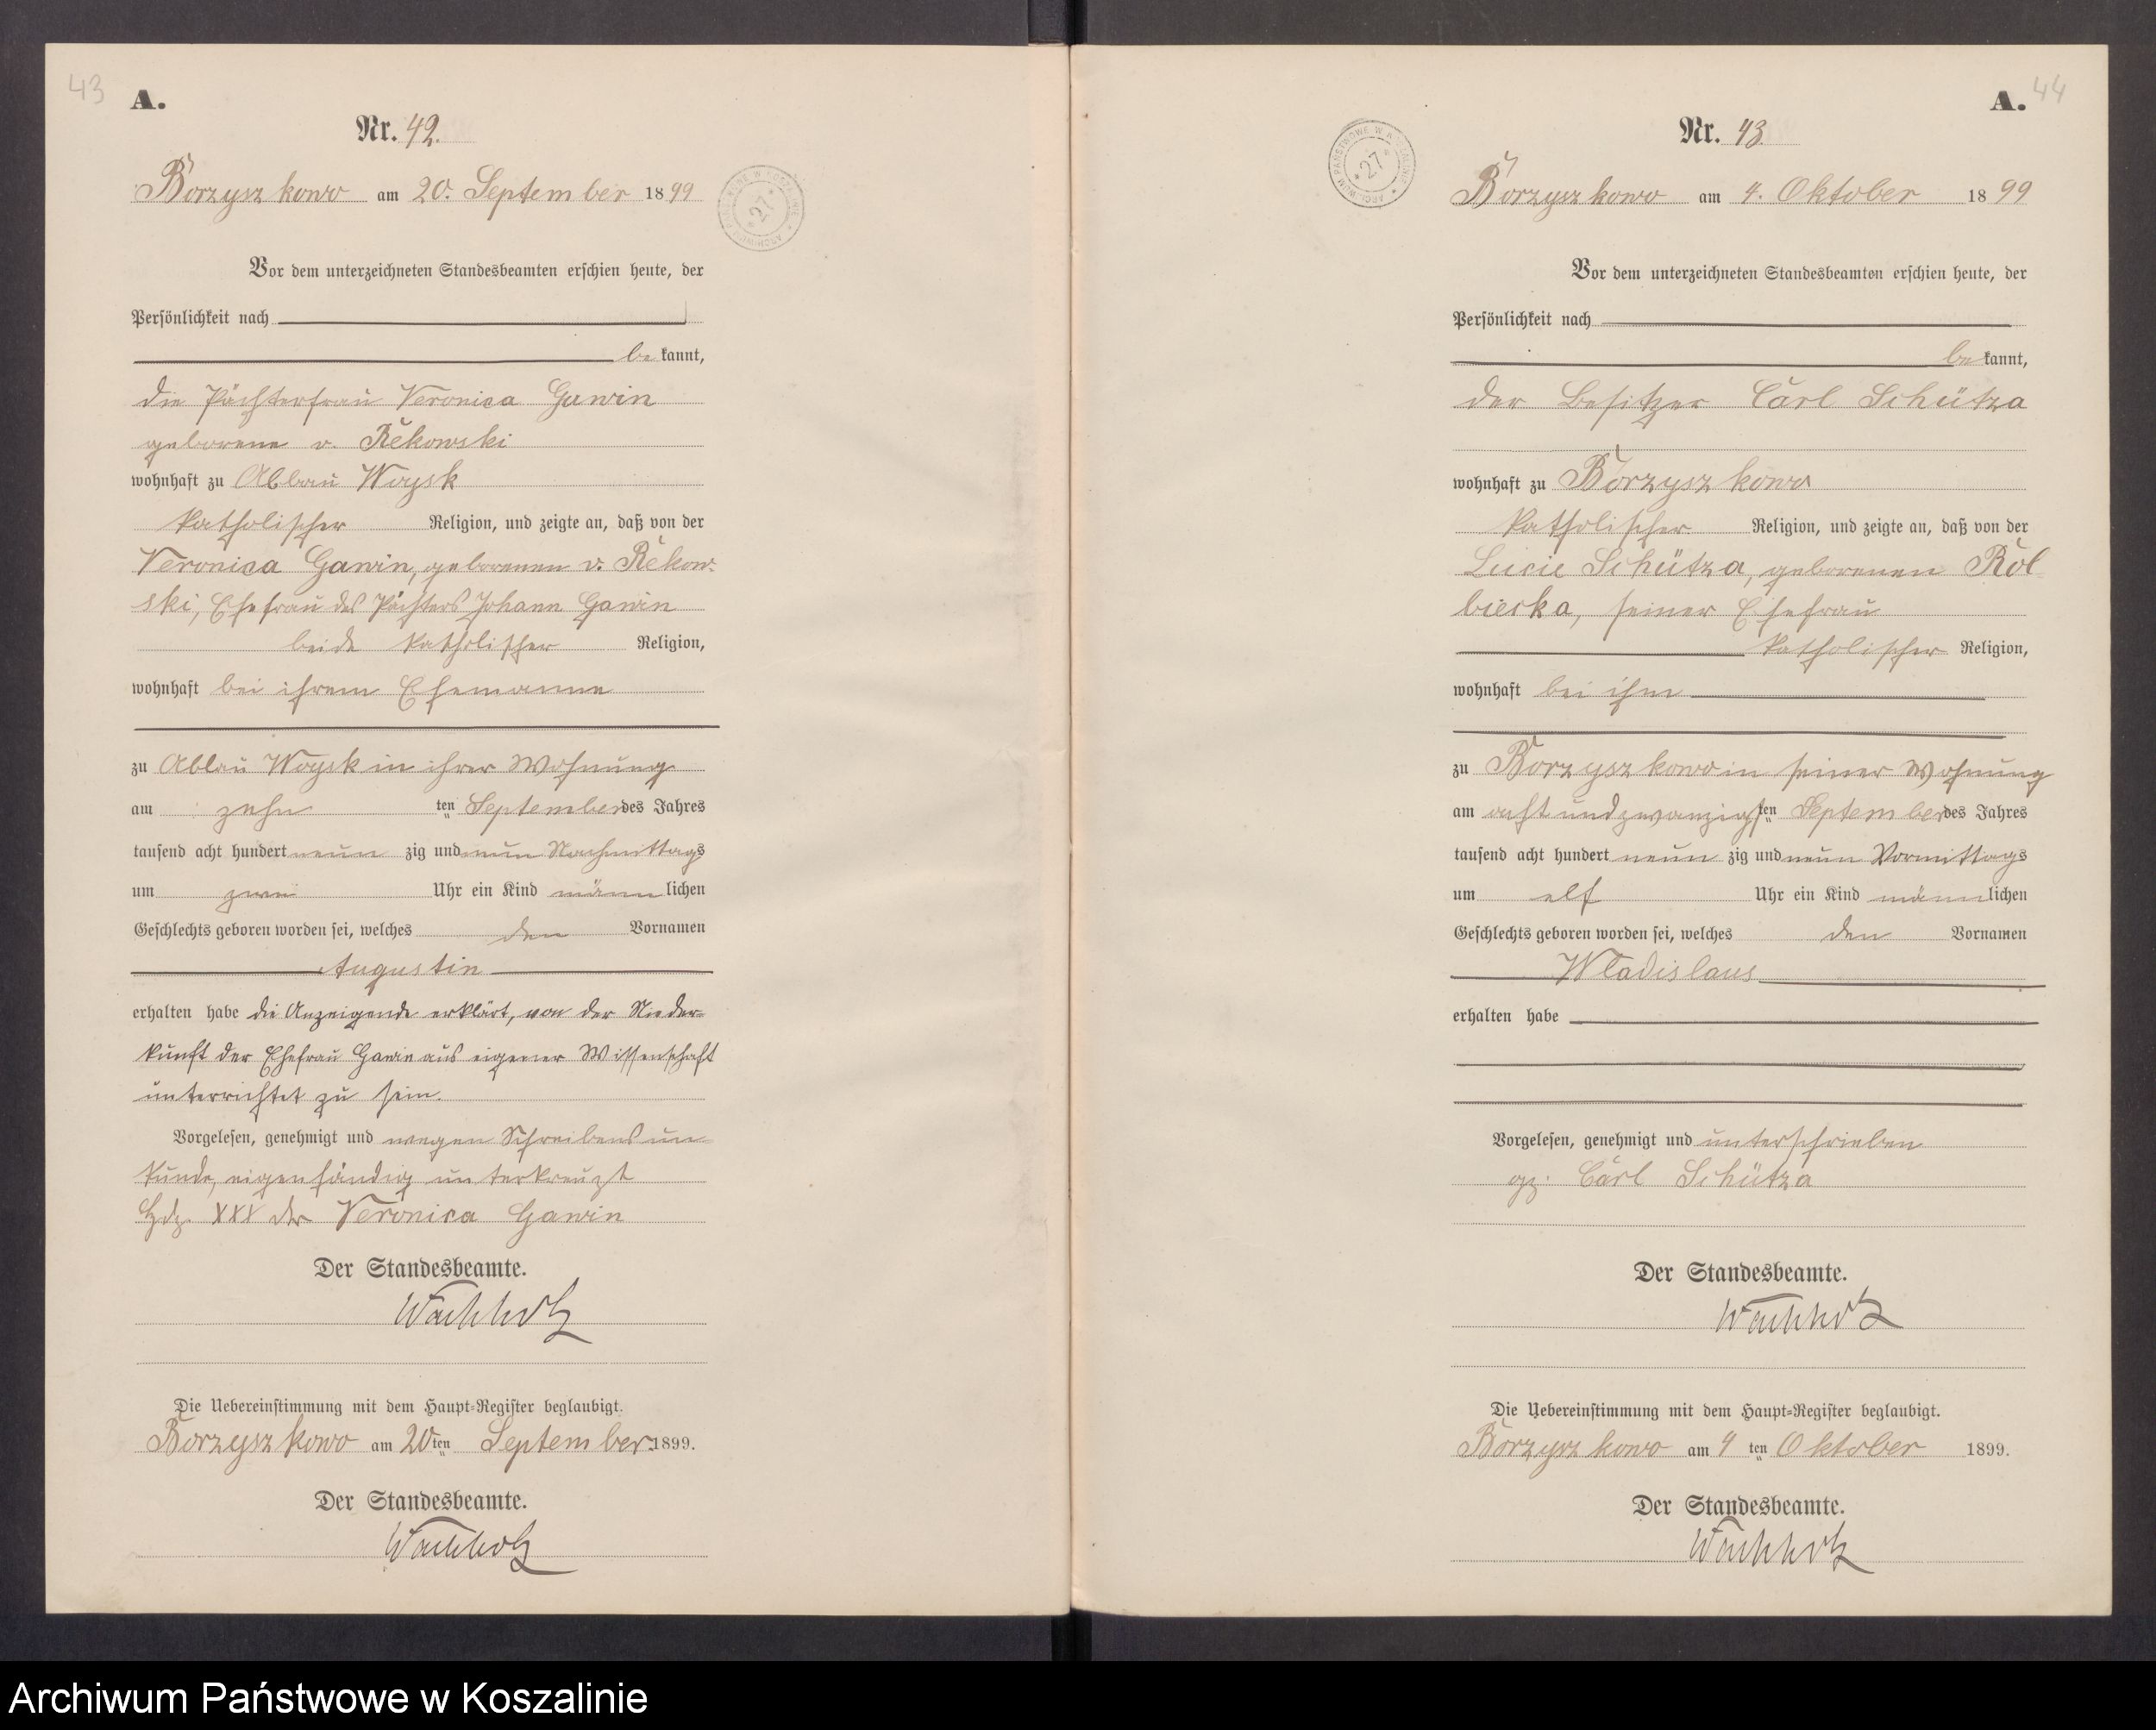 43
A.
Nr. 42.
Borzyszkowo am 20. September 1899
ARCHIWUM PAŃSTWOWE W KOSZALINIE
* 27 *
Vor dem unterzeichneten Standesbeamten erschien heute, der
Persönlichkeit nach
bekannt,
die Pächterfrau Veronica Gawin
geborene v. Rekowski
wohnhaft zu Abbau Woysk
katholischer Religion, und zeigte an, daß von der
Veronica Gawin, geborenen v. Rekow-
ski, Ehefrau des Pächters Johann Gawin
beide katholischer Religion,
wohnhaft bei ihrem Ehemanne
zu Abbau Woysk in ihrer Wohnung
am zehn ten September des Jahres
tausend acht hundert neun zig und neun Nachmittags
um zwei Uhr ein Kind männlichen
Geschlechts geboren worden sei, welches den Vornamen
Augustin
erhalten habe die Anzeigende erklärt, von der Nieder=
kunft der Ehefrau Gawin aus eigener Wissenschaft
unterrichtet zu sein.
Vorgelesen, genehmigt und wegen Schreibensun-
kunde, eigenhändig unterkreuzt
Hdz. XXX der Veronica Gawin
Der Standesbeamte.
Wachholz
Die Uebereinstimmung mit dem Haupt=Register beglaubigt.
Borzyszkowo am 20ten September 1899.
Der Standesbeamte.
Wachholz
A. 44
Nr. 43.
ARCHIWUM PAŃSTWOWE W KOSZALINIE
* 27 *
Borzyszkowo am 4. Oktober 1899
Vor dem unterzeichneten Standesbeamten erschien heute, der
Persönlichkeit nach
bekannt,
der Besitzer Carl Schütza
wohnhaft zu Borzyszkowo
katholischer Religion, und zeigte an, daß von der
Lucie Schütza, geborenen Rol-
biecka, seiner Ehefrau
katholischer Religion,
wohnhaft bei ihm
zu Borzyszkowo in seiner Wohnung
am achtundzwanzigsten September des Jahres
tausend acht hundert neun zig und neun Vormittags
um elf Uhr ein Kind männlichen
Geschlechts geboren worden sei, welches den Vornamen
Wladislaus
erhalten habe
Vorgelesen, genehmigt und unterschrieben
gz. Carl Schütza
Der Standesbeamte.
Wachholz
Die Uebereinstimmung mit dem Haupt=Register beglaubigt.
Borzyszkowo am 4 ten Oktober 1899.
Der Standesbeamte.
Wachholz
Archiwum Państwowe w Koszalinie